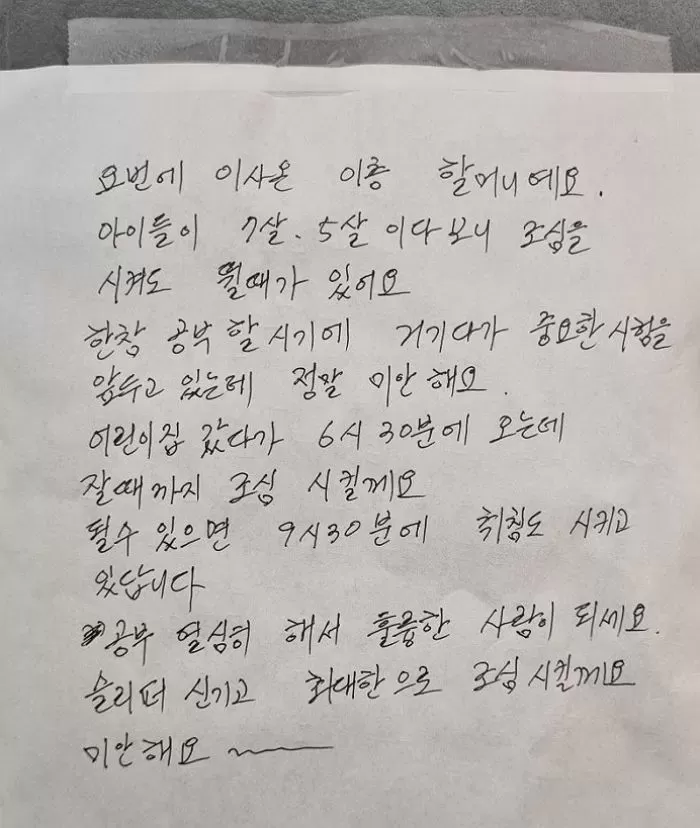 요번에 이사온 이층 할머니예요.
아이들이 7살. 5살 이다보니 조심을
시켜도 뛸때가 있어요
한창 공부 할 시기에 거기다가 중요한 시험을
앞두고 있는데 정말 미안 해요.
어린이집 갔다가 6시 30분에 오는데
잘때 까지 조심 시킬께요
될수 있으면 9시30분에 취침도 시키고
있답니다
공부 열심히 해서 훌륭한 사람이 되세요.
슬리퍼 신기고 최대한으로 조심 시킬께요
미안해요 ~